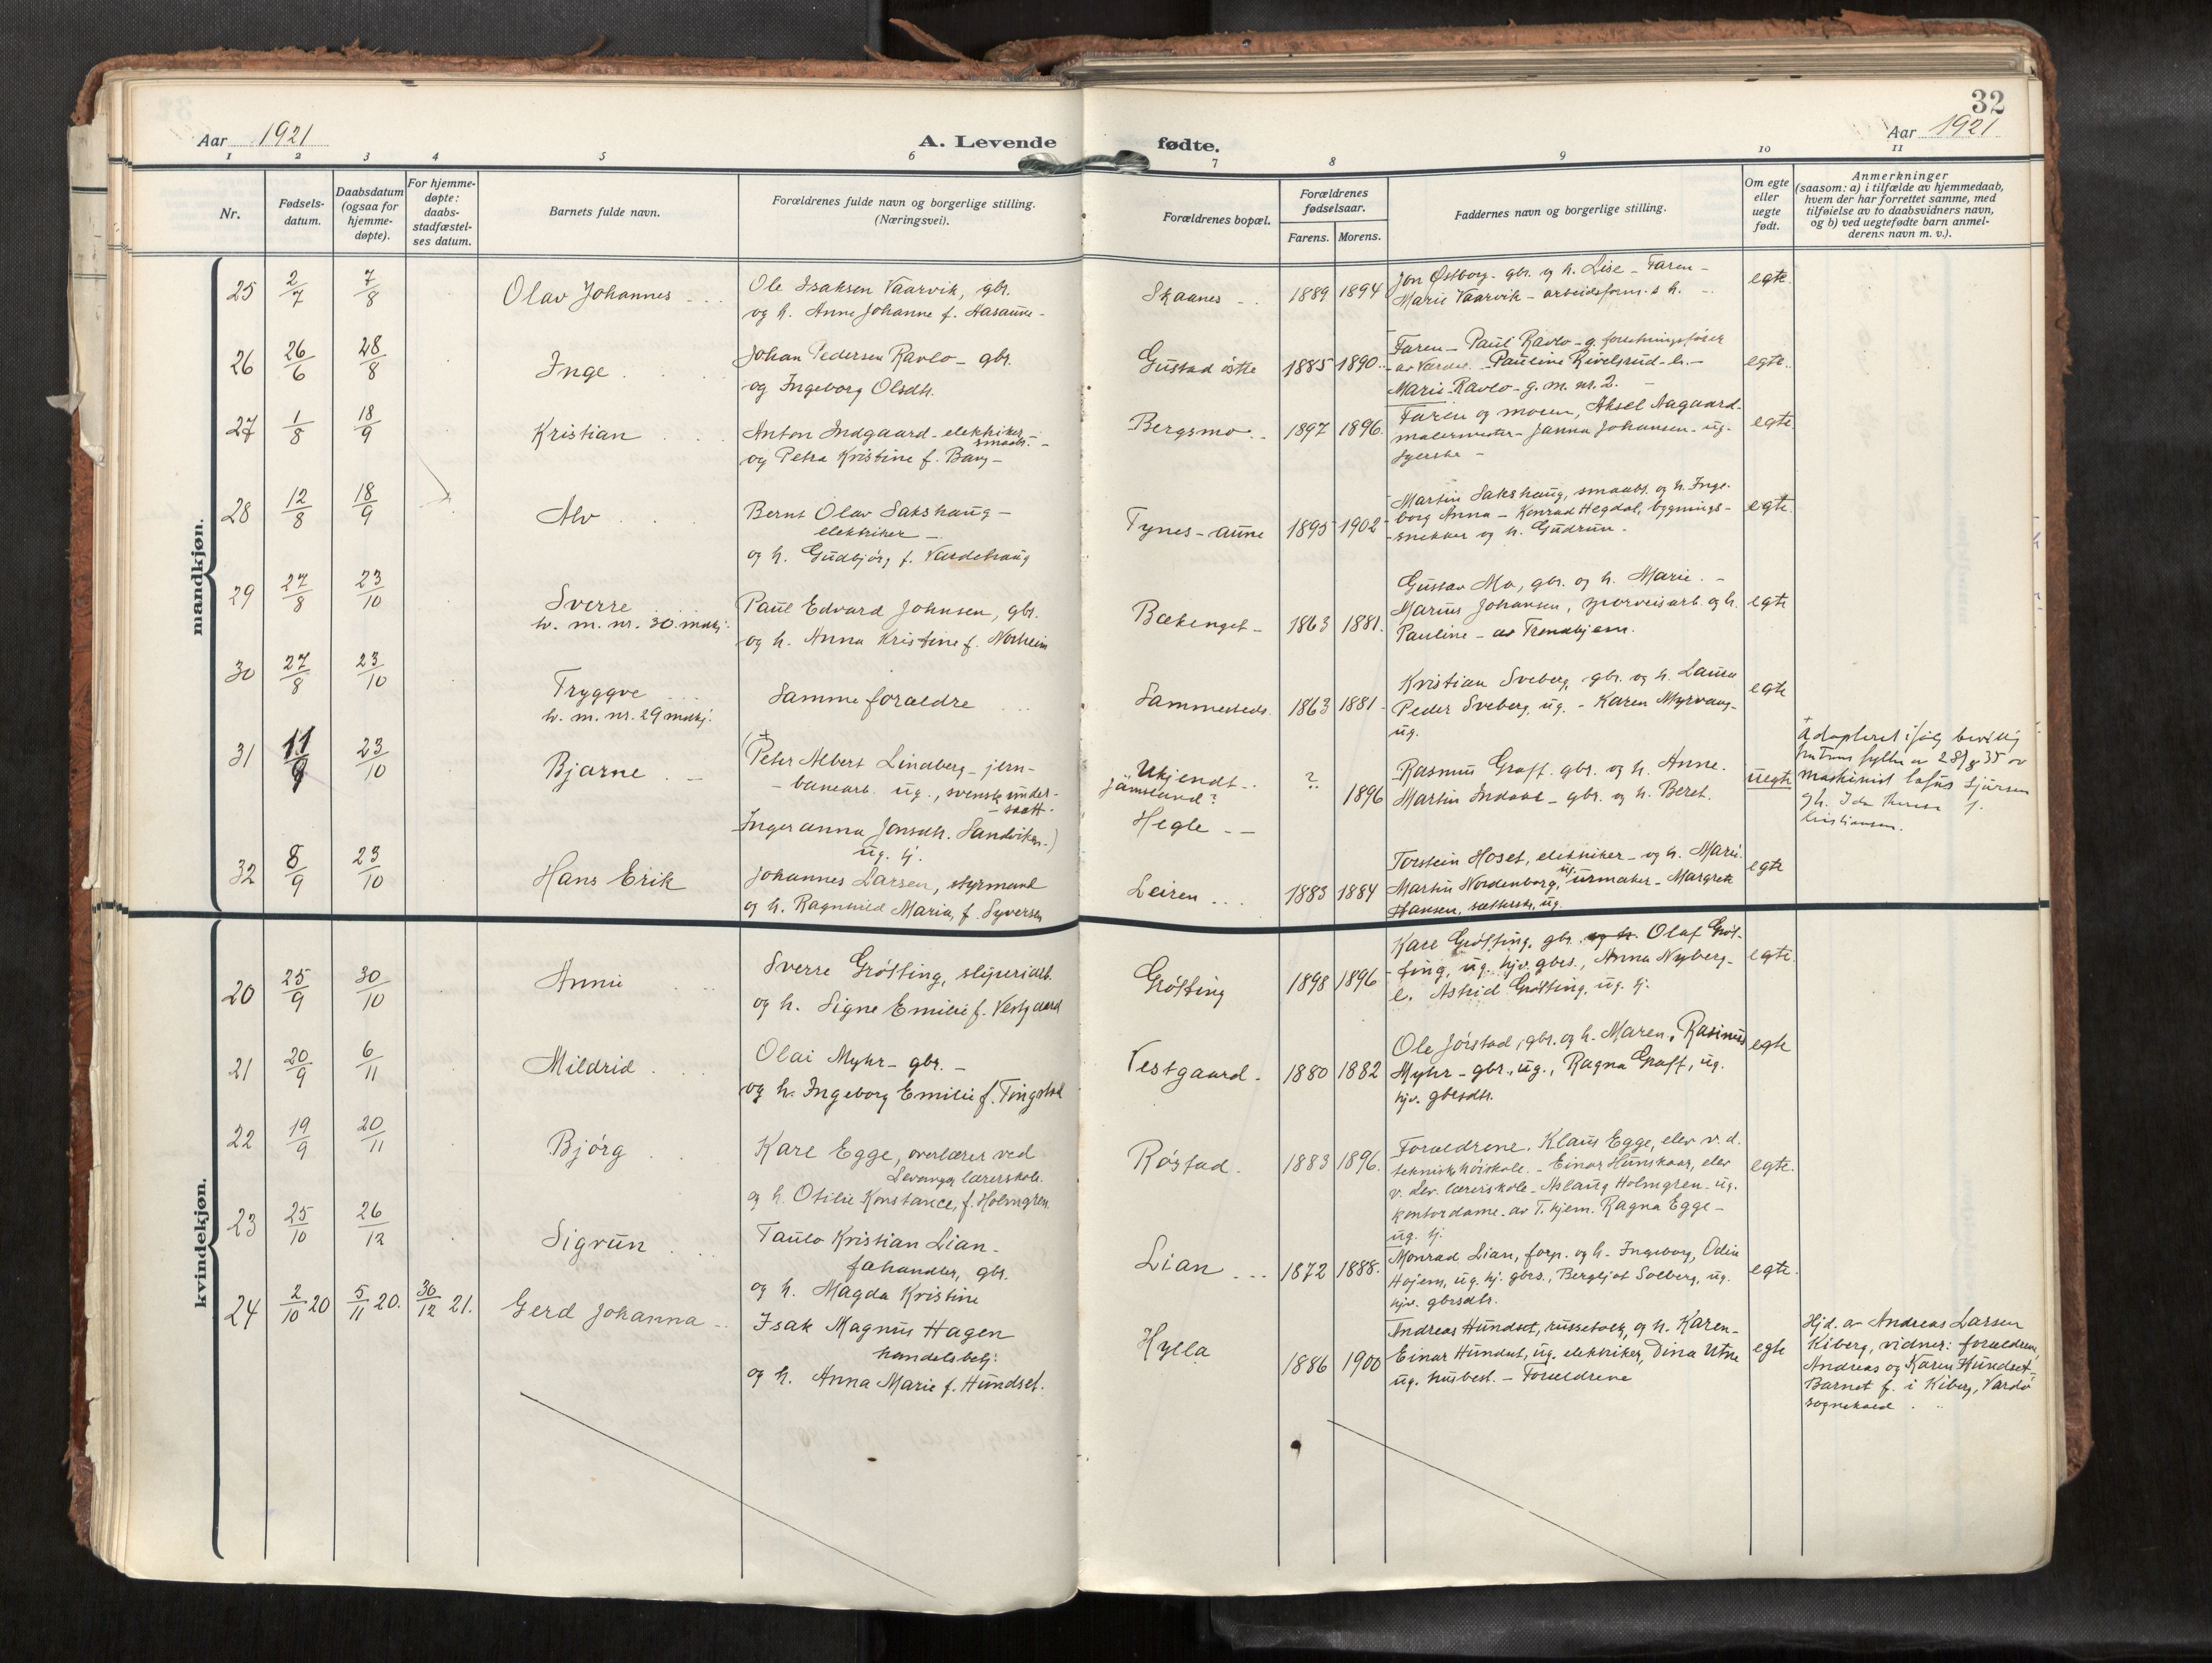 32
Aar 1921
A. Levende fødte.
Aar 1921
1 2 3 4 5 6 7 8 9 10 11
Nr.
Fødsels-
datum.
Daabsdatum
(ogsaa for
hjemme-
døpte).
For hjemme-
døpte:
daabs-
stadfæstel-
ses datum.
Barnets fulde navn.
Forældrenes fulde navn og borgerlige stilling.
(Næringsvei).
Forældrenes bopæl.
Forældrenes
fødselsaar.
Farens. Morens.
Faddernes navn og borgerlige stilling.
Om egte
eller
uegte
født.
Anmerkninger
(saasom: a) i tilfælde av hjemmedaab,
hvem der har forrettet samme, med
tilføielse av to daabsvidners navn,
og b) ved uegtefødte barn anmel-
derens navn m. v.).
mandkjøn.
25 2/7 7/8 Olav Johannes
Ole Isaksen Vaarvik, gbr.
og h. Anne Johanne f. Aasaune
Skaanes 1889 1894
Jon Østborg gbr. og h. Lise - Faren -
Marie Vaarvik - arbeidsform.s h.
egte.
26 26/6 28/8 Inge
Johan Pedersen Ravlo - gbr.
og Ingeborg Olsdtr.
Gustad østre 1885 1890
Faren - Paul Ravlo - g. forretningsfører
av Værdal. Pauline Kivelsrud - e. -
Marie Ravlo - g. m. nr. 2.
egte.
27 1/8 18/9 Kristian
Anton Indgaard - elektriker
smaabr. -
og Petra Kristine f. Bang -
Bergsmo 1897 1896.
Faren og moren, Aksel Aagaard -
malermester - Janna Johansen - ug.
syerske -
egte.
28 12/8 18/9 Alv
Bernt Olav Sakshaug -
elektriker -
og h. Gudbjørg f. Vardehaug
Tynes-aune 1895 1902
Martin Sakshaug, smaabr. og h. Inge-
borg Anna - Konrad Hegdal, bygnings-
snekker og h. Gudrun.
egte.
29 27/8 23/10 Sverre
tv. m. nr. 30 mukj.
Paul Edvard Johnsen, gbr.
og h. Anna Kristine f. Norheim
Bækenget - 1863 1881.
Gustav Mo, gbr. og h. Marie. -
Marius Johansen, sporveisarb. og h.
Pauline - av Trondhjem.
egte
30 27/8 23/10 Tryggve
tv. m. nr. 29 mukj.
Samme forældre
Sammesteds. 1863 1881
Kristian Sveberg, gbr. og h. Laura
Peder Sveberg, ug. - Karen Myrvang -
ug.
egte
31 11/9 23/10 Bjarne
(Peter Albert Lindberg - jern-
banearb. ug., svensk under-
saatt.
Inger Anna Jonsdtr. Sandviken.)
ug. tj.
Ukjendt
Jämtland?
Hegle
? 1896
Rasmus Graff. gbr. og h. Anne.
Martin Indahl - gbr. og h. Beret.
uegte
Adopteret ifølg bevillg
maskinist
gh. Ida
Kristiansen.
32 8/9 23/10 Hans Erik
Johannes Larsen, styrmand
og h. Ragnhild Maria, f. Syversen
Leiren 1883 1884
Torstein Hoset, elektriker - og h. Marie.
Martin Nordenborg, ug. urmaker - Margrete
Hansen, sætterske, ug.
egte
kvindekjøn.
20 25/9 30/10 Annie
Sverre Grøtting, sliperiarb.
og h. Signe Emilie f. Vestgaard
Grøtting 1898 1896
Kare Grøtting, gbr. og h. Olaf Grøt-
ting, ug. hjv. gbrs., Anna Nyberg -
e. Astrid Grøtting, ug. tj.
egte.
21 20/9 6/11 Mildrid
Olai Myhr - gbr. -
og h. Ingeborg Emilie f. Tingstad
Vestgaard - 1880 1882
Ole Jørstad, gbr. og h. Maren, Rasinus
Myhr - gbr., ug., Ragna Graff, ug.
hjv. gbrsdtr.
egte
22 19/9 20/11 Bjørg
Kare Egge, overlærer ved
Levanger lærerskole.
og h. Otilie Konstance, f. Holmgren
Røstad 1883 1896.
Forældrene. Klaus Egge, elev v. d.
tekniske høiskole. - Einar Hunskaar, elev
v. Lev. lærerskole - Aslaug Holmgren - ug.
kontordame - av T.hjem. Ragna Egge -
ug. tj.
egte.
23 25/10 26/12 Sigrun
Taulo Kristian Lian -
fehandler, gbr.
og h. Magda Kristine
Lian 1872 1888.
Monrad Lian, forp. og h. Ingeborg, Odin
Hojem, ug. hj. gbrs., Bergljot Solberg, ug.
hjv. gbrsdtr.
egte.
24 2/10 20 5/11 20. 30/12 21. Gerd Johanna
Isak Magnus Hagen
handelsbetj.
og h. Anna Marie f. Hundset.
Hylla 1886 1900
Andreas Hundset, russetolk, og h. Karen -
Einar Hundset, ug. elektriker, Dina Utne
ug. husbest. - Forældrene
egte
Hjd. av Andreas Larsen
Kiberg, vidner: forældrene,
Andreas og Karen Hundset
Barnet f. i Kiberg, Vardø
sognekald